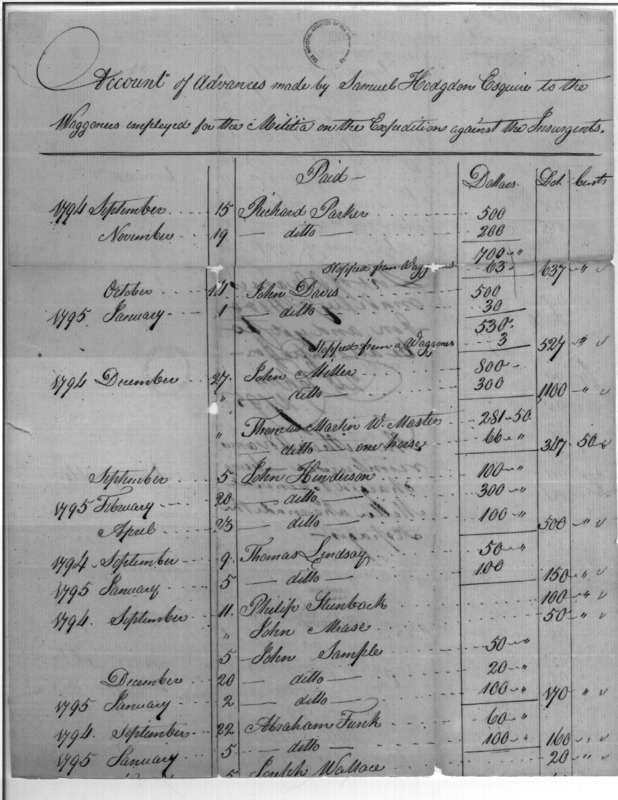 Account of Advances made by Samuel Hodgdon Esquire to the
Waggoners employed for the Militia on the Expedition against the Insurgents.
Paid — Dollars Doll Cents
1794 September 15 Richard Parker 500
November 19 — ditto — 200
700 - "
Stopped from Waggoners 63 637 " "
October 14 John Davis 500
1795 January 1 — ditto — 30
530
Stopped from a Waggoner 3 527 " "
1794 December 27 John Miller 800 -
" — ditto — 300 1100 " "
" Thomas Martin W. Master 281-50
ditto one horse 66 " 347. 50
September 5 John Henderson 100 - "
1795 February 20 — ditto — 300 - "
April 23 — ditto — 100 - " 500 " "
1794 September 9 Thomas Lindsay 50 - "
1795 January 5 — ditto — 100 150 - "
1794 September 11 Philip Steinback 100 - "
" John Mease 50 - "
5 John Sample 50 - "
December 20 — ditto — 20 - "
1795 January 2 — ditto — 100 - " 170 "
1794 September 22 Abraham Funk 60 - "
1795 January 5 — ditto — 100 - " 160 "
5 Joseph Wallace 20 "